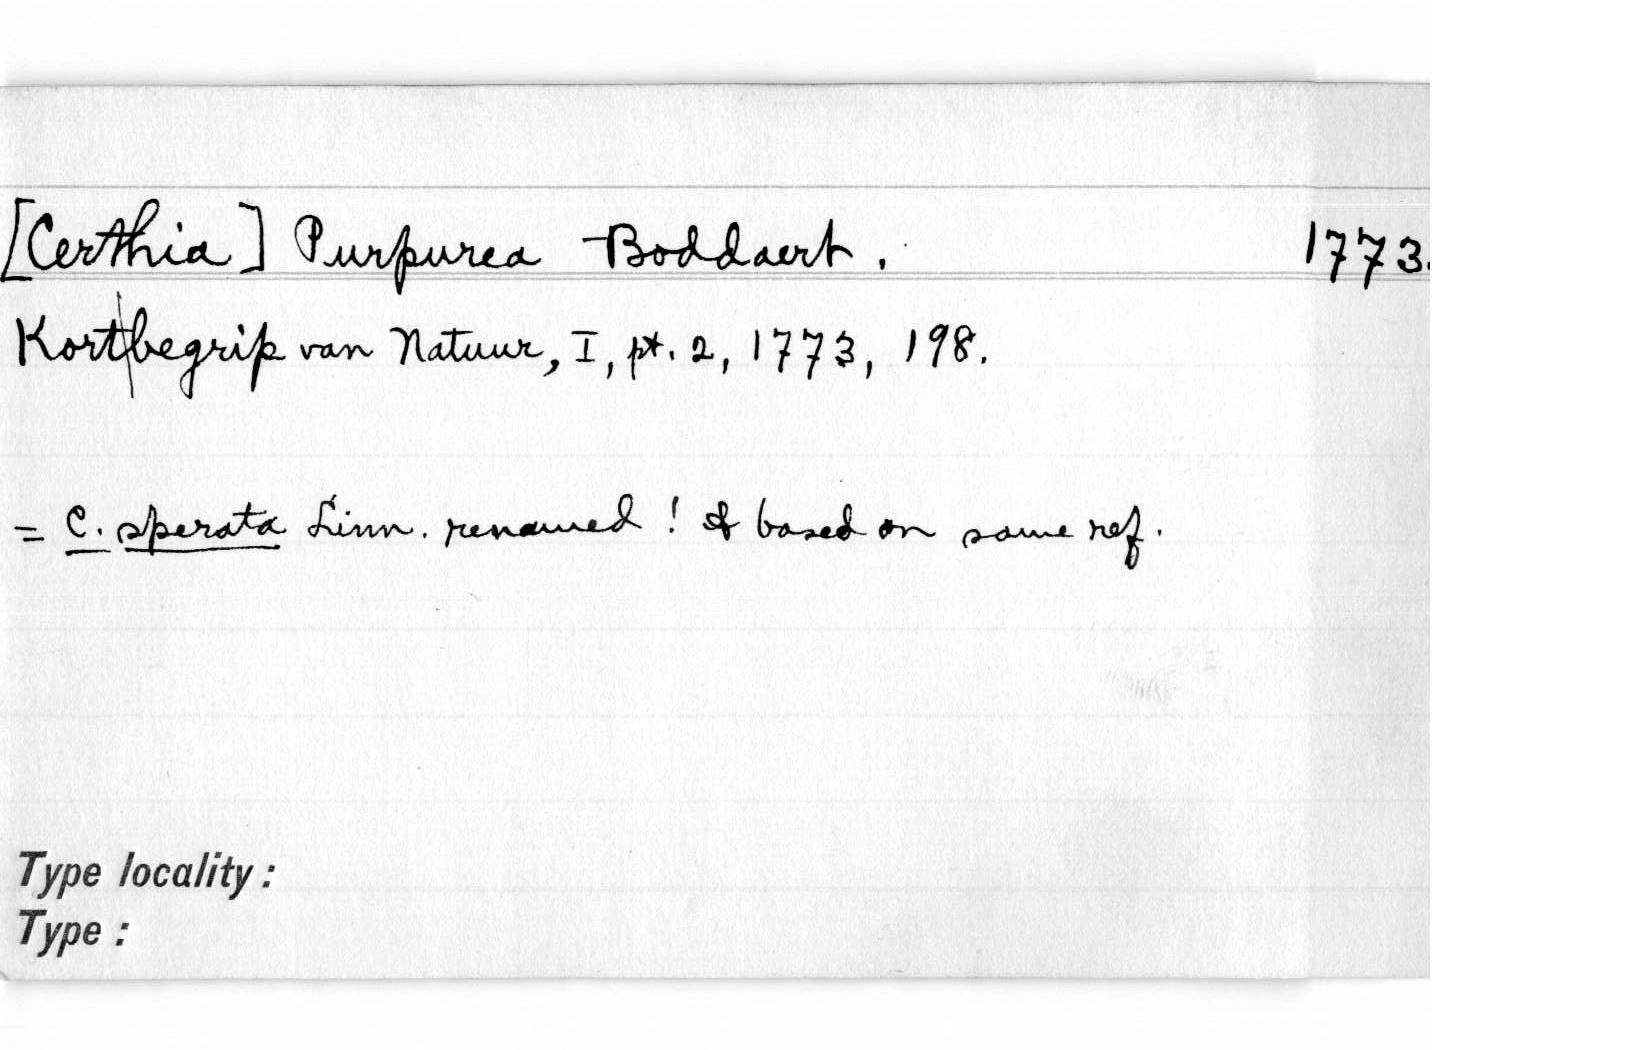 [Certhia] Purpurea Boddaert. 1773.
Kort|begrip van Natuur, I, pt. 2, 1773, 198.
= C. sperata Linn. renamed! & based on same ref.
Type locality:
Type: